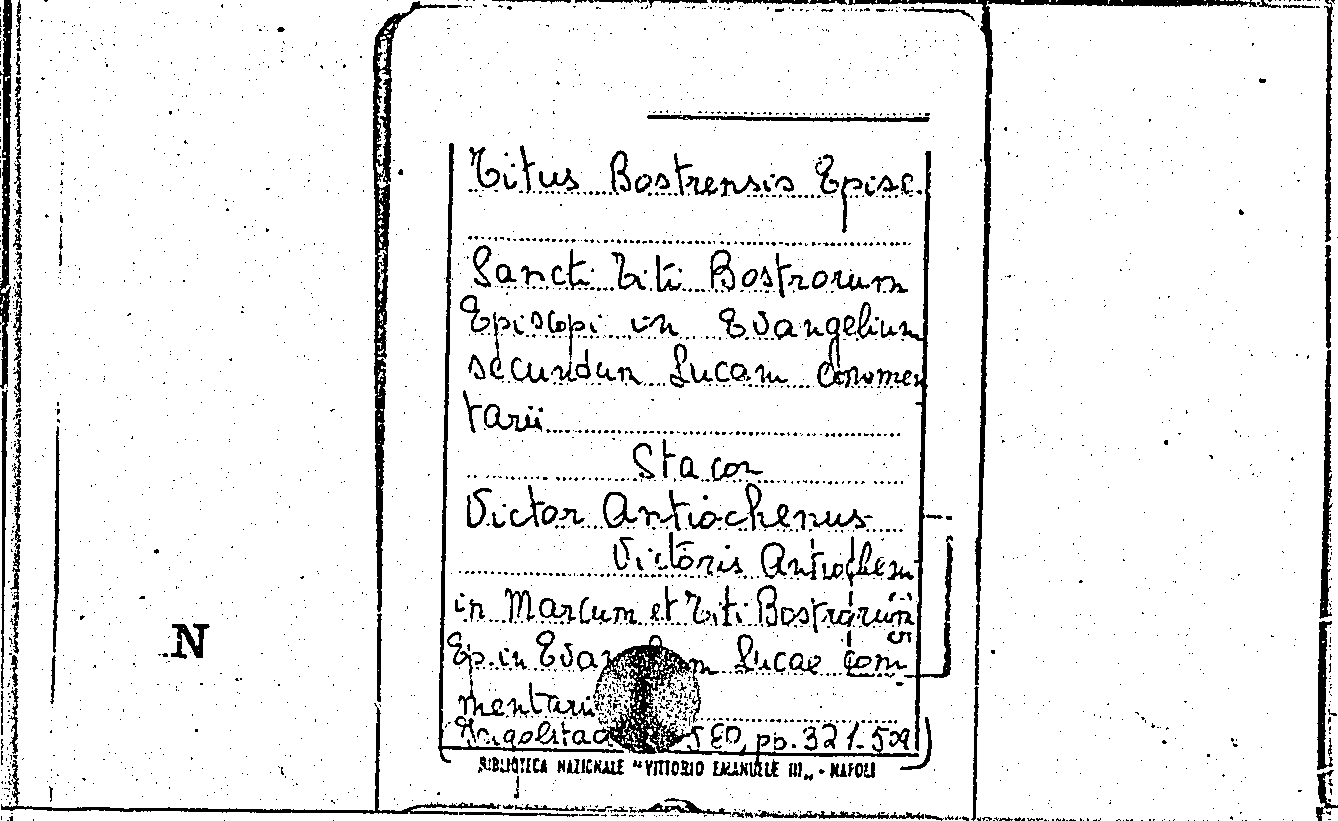 Titus Bostrensis Episc.
Sancti Titi Bostrorum
Episcopi in Evangelium
secundum Lucam Commen
tarii
Sta con
Victor Antiochenus
Victoris Antiocheni
in Marcum et Titi Bostrorum
Ep. in Evan m Lucae Com
mentarii
580, pp. 321-509
BIBLIOTECA NAZIONALE "VITTORIO EMANUELE III„ - NAPOLI
N